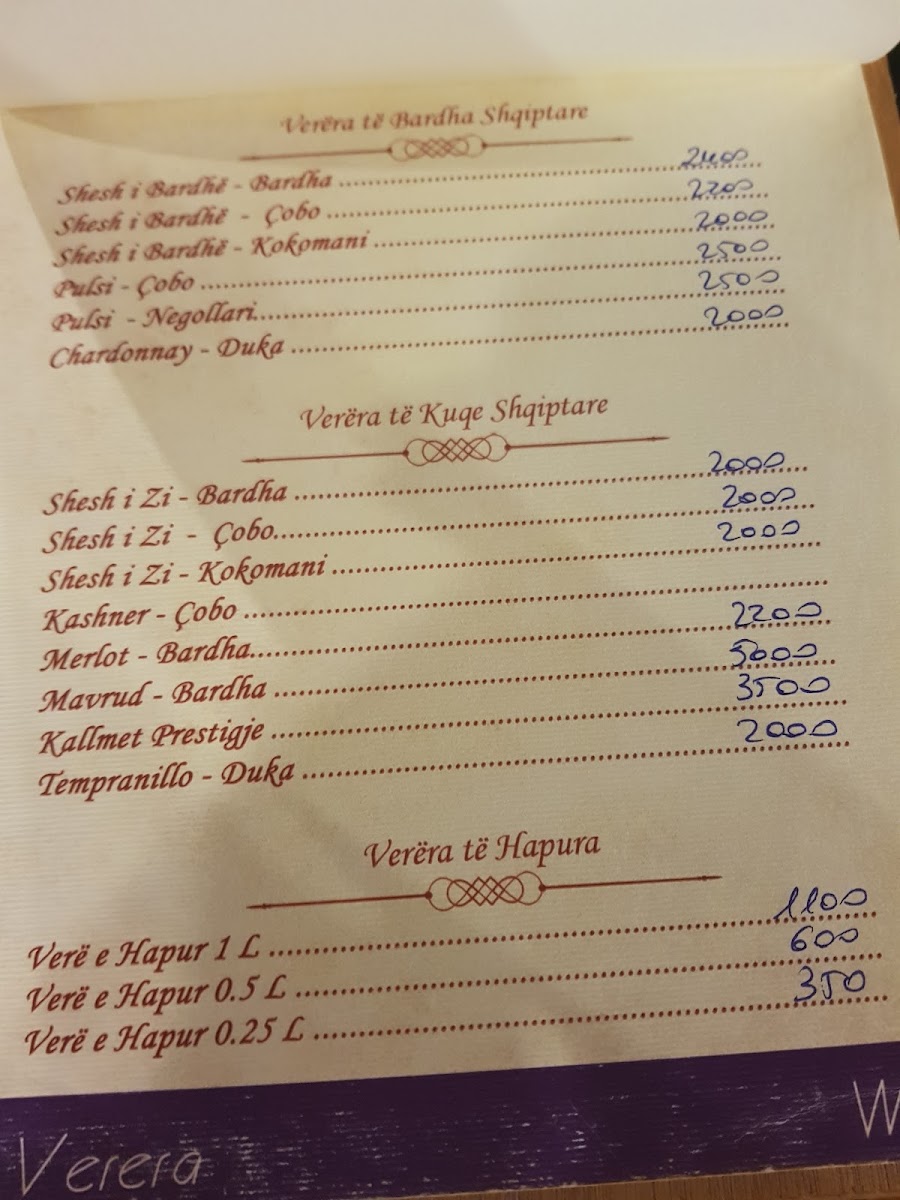 Verëra të Bardha Shqiptare
Shesh i Bardhë - Bardha ........ 2400
Shesh i Bardhë - Çobo ........ 2200
Shesh i Bardhë - Kokomani ........ 2000
Pulsi - Çobo ........ 2500
Pulsi - Negollari ........ 2500
Chardonnay - Duka ........ 2000
Verëra të Kuqe Shqiptare
Shesh i Zi - Bardha ........ 2000
Shesh i Zi - Çobo ........ 2000
Shesh i Zi - Kokomani ........ 2000
Kashner - Çobo ........
Merlot - Bardha ........ 2200
Mavrud - Bardha ........ 5000
Kallmet Prestigje ........ 3500
Tempranillo - Duka ........ 2000
Verëra të Hapura
Verë e Hapur 1 L ........ 1100
Verë e Hapur 0.5 L ........ 600
Verë e Hapur 0.25 L ........ 350
Verera